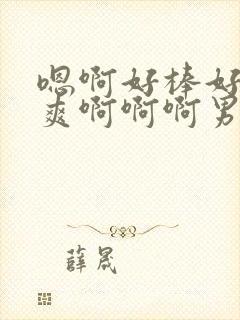 嗯啊好棒好
爽啊啊啊男
薛晟